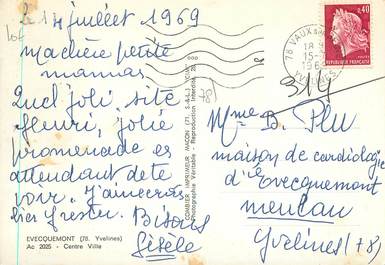 le 14 juillet 1969
lot
ma chère petite
maman
Quel joli site
fleuri, jolie
promenade es
attendant de te
voir. J'aimerais
bien rester. Bisous
Gisèle
EVECQUEMONT (78. Yvelines)
Ac 2025 - Centre Ville
COMBIER IMPRIMEUR MACON (71. S.-&-L.)
Photographie Véritable - Reproduction Interdite
78
78 VAUX
18 H
15-7
1969
YVELINES
0,40
REPUBLIQUE FRANÇAISE
314
Mme B. Plu
maison de cardiologie
d'Evecquemont
meulan
Yvelines (78)